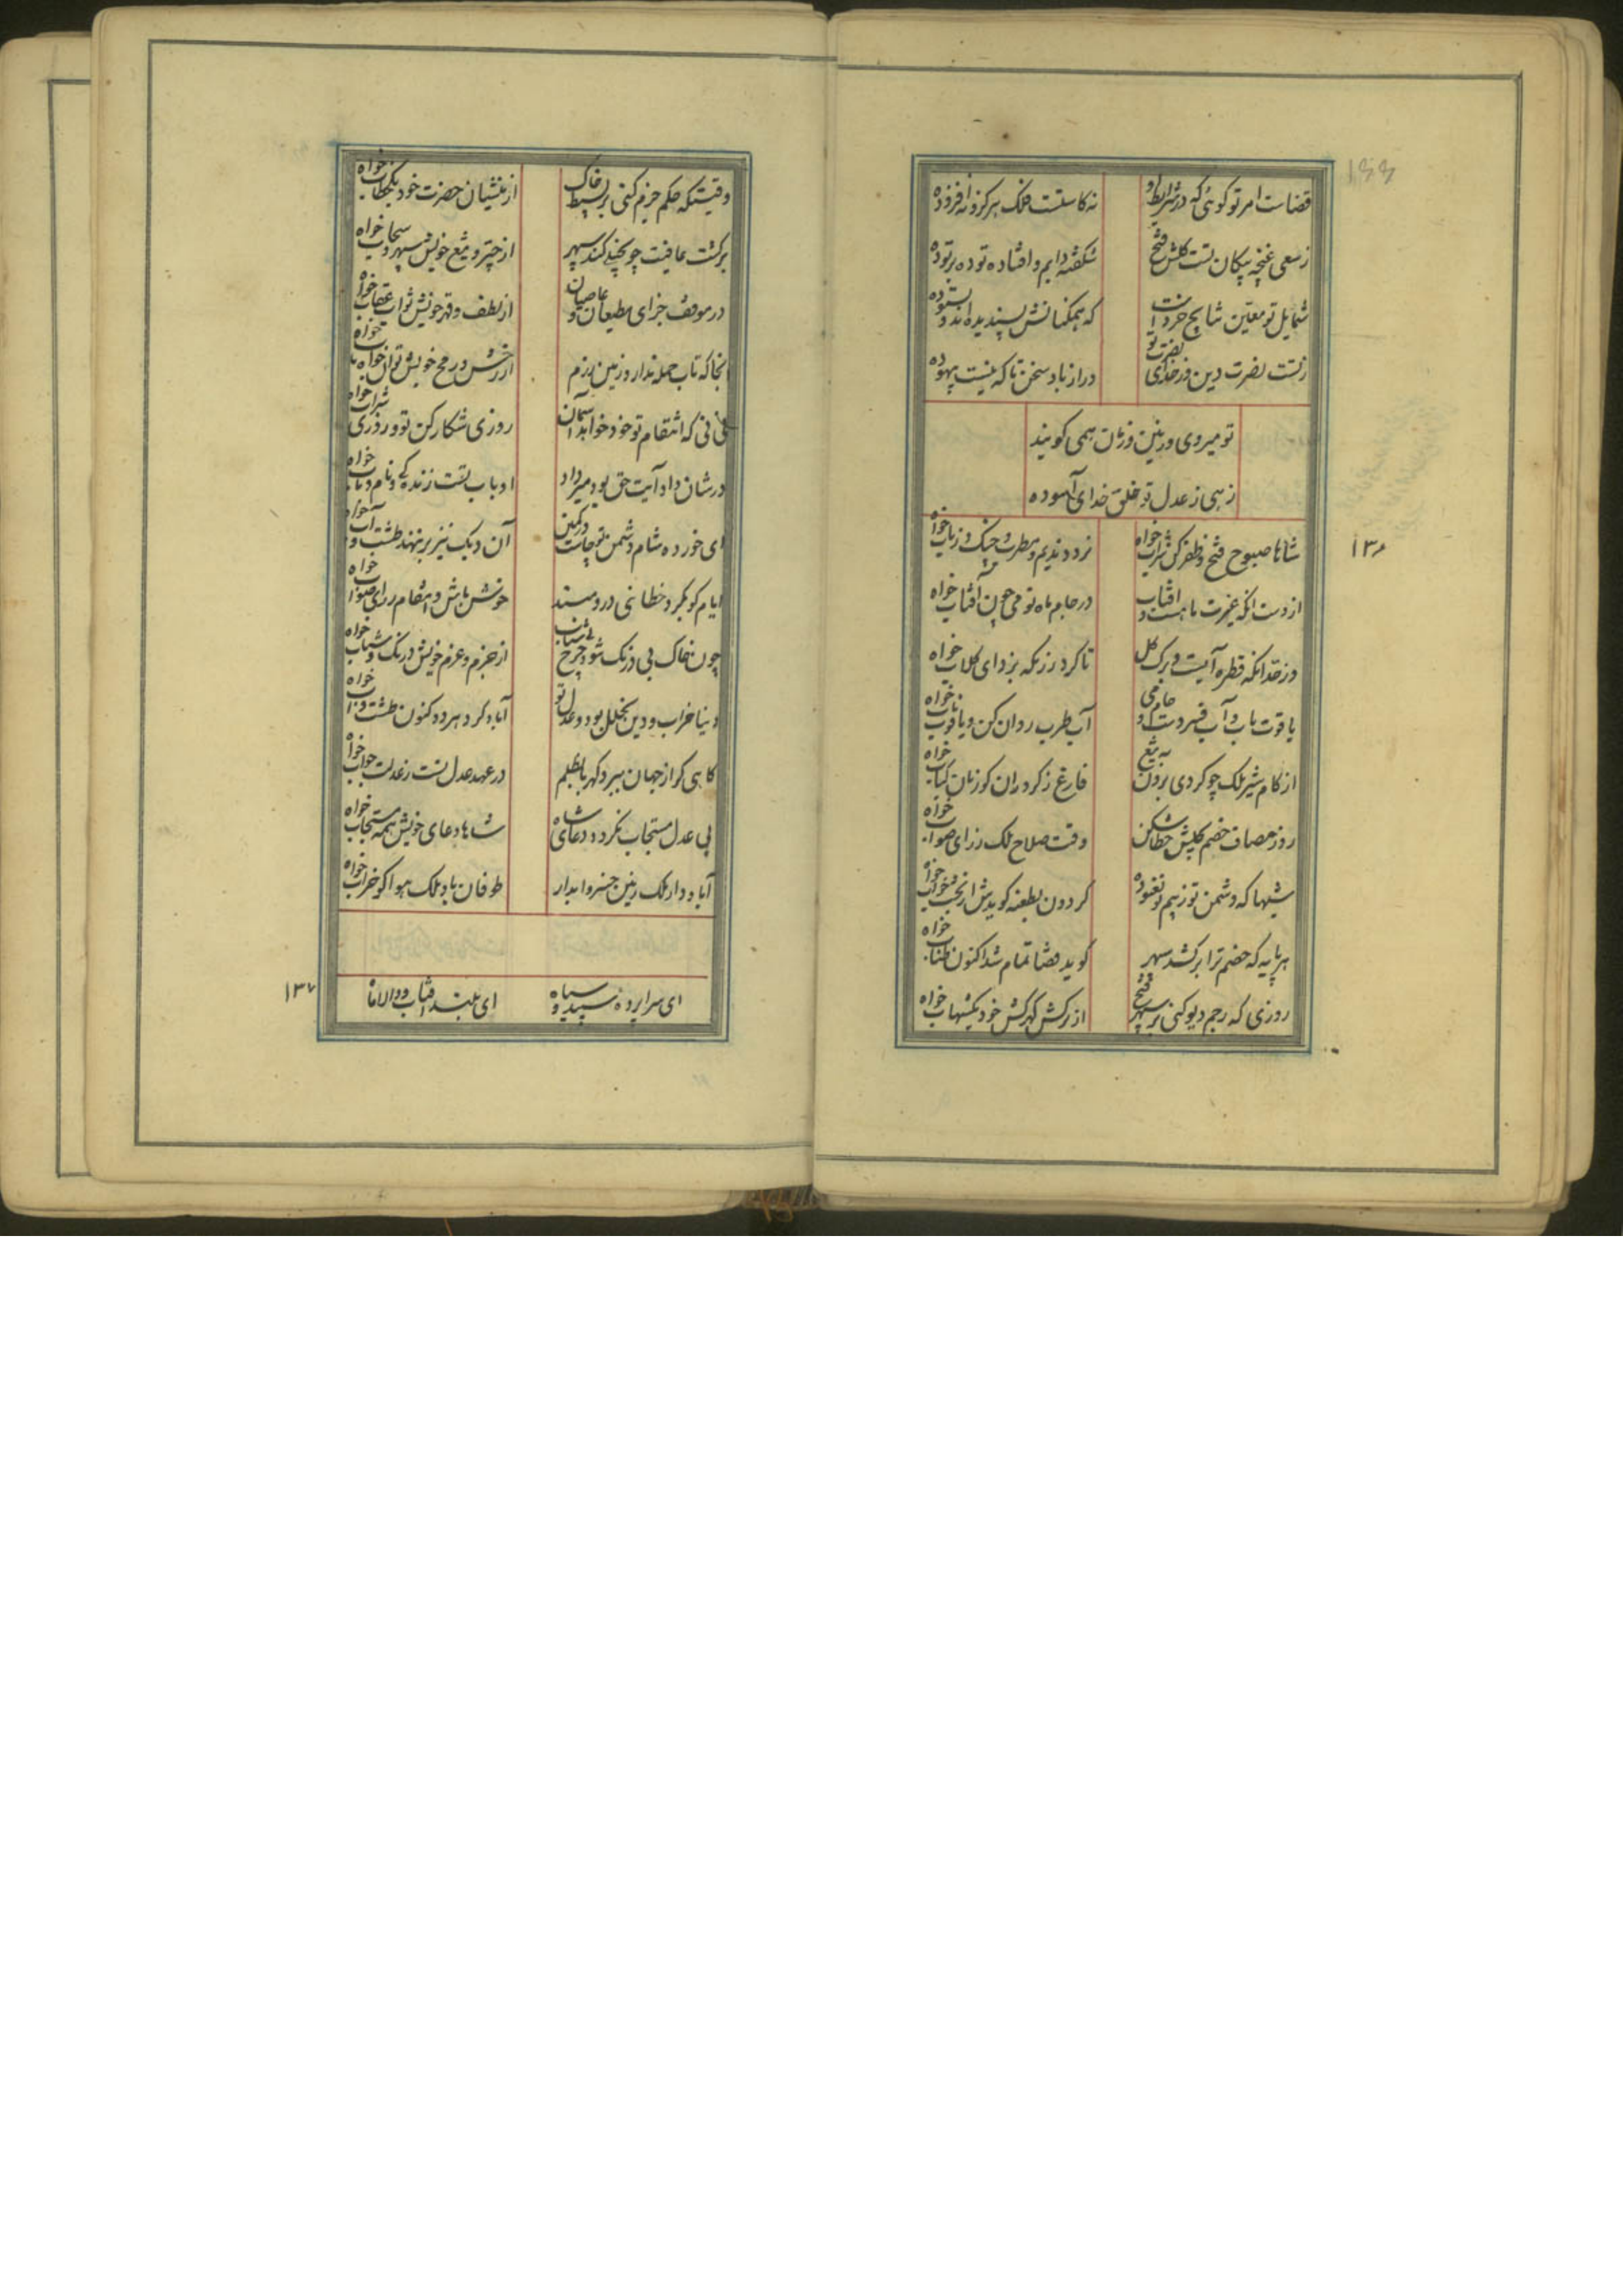 قضات امر تو گوئی که در شرایط او نه کاستست فلک هرگز و نه افزوده
ز سعی غنچه پیکان تست گلشن فتح شکفته دایم و افتاده توده بر توده
شمایل تو معین نتایج خردست که همگنانش پسندیده‌اند و بستوده
زتست نصرت دین ورخدای نصرت تو دراز باد سخن تا که نیست بیهوده
تو میروی و زمین و زمان همی گویند
زهی ز عدل تو خلق خدای آسوده
شاها صبوح فتح و ظفر کن شراب خواه نرد و ندیم و مطرب و چنگ و رباب خواه
از دست آنکه غیرت ماهست و آفتاب در جام ماه نو می چون آفتاب خواه
وز خد آنکه قطره آبست و برک کل تا گرد رزمگه بزدای گلاب خواه
یاقوت ناب و آب فسردست جام می آب طرب روان کن و یاقوت ناب خواه
از کام شیر ملک چو کردی برون به تیغ فارغ ز گرد ران گوزنان کباب خواه
روز مصاف خصم کلیش خطا شکن وقت صلاح ملک ز رای صواب خواه
شبها که دشمن تو ز بیم تو نغنوده گردون بطعنه گویدش از بخت خواب خواه
هر پایه که خصم ترا برکشد سپهر گوید قضا تمام شد اکنون طناب خواه
روزی که رجم دیو کنی بر سپهر فتح از ترکش گهرکش خود یک شهاب خواه
۱۳۶
وقتیکه حکم جزم کنی بر بسیط خاک از منشیان حضرت خود یک خطاب خواه
بر کشت عافیت چو بخیلی کند سپهر از چتر و تیغ خویش سپهر و سحاب خواه
در موقف جزای مطیعان و عاصیان از لطف و قهر خویش ثواب و عقاب خواه
آنجا که تاب حمله ندارد زمین رزم از رخش و رمح خویش توان خواه و تاب خواه
نی نی که انتقام تو خود خواهد آسمان روزی شکار کن تو و روزی شراب خواه
در شان داد آیت حق بود میر داد او باب تست زندگی و نام باب خواه
ای خورده شام دشمن تو چاشت در کمین آن دیک نیز بر نهند طشت و آب خواه
ایام کو بکرد خطائی درو مبند خوش باش و انتقام ز رای صواب خواه
چون خاک بی درنگ شود چرخ بی شتاب از حزم و عزم خویش درنگ و شتاب خواه
دنیا خراب و دین بخلل بود و عدل تو آباد کرد هر دو کنون طشت و آب خواه
کاهی گر از جهان ببرد کهربا بظلم در عهد عدل تست ز عدلت جواب خواه
بی عدل مستجاب نگردد دعای شاه شاها دعای خویش همه مستجاب خواه
آباد دار ملک زمین خسروا بداد طوفان باد ملک هوا گو خراب خواه
ای سراپرده سپید و سیاه ای بلند آفتاب و والا ماه
۱۳۷